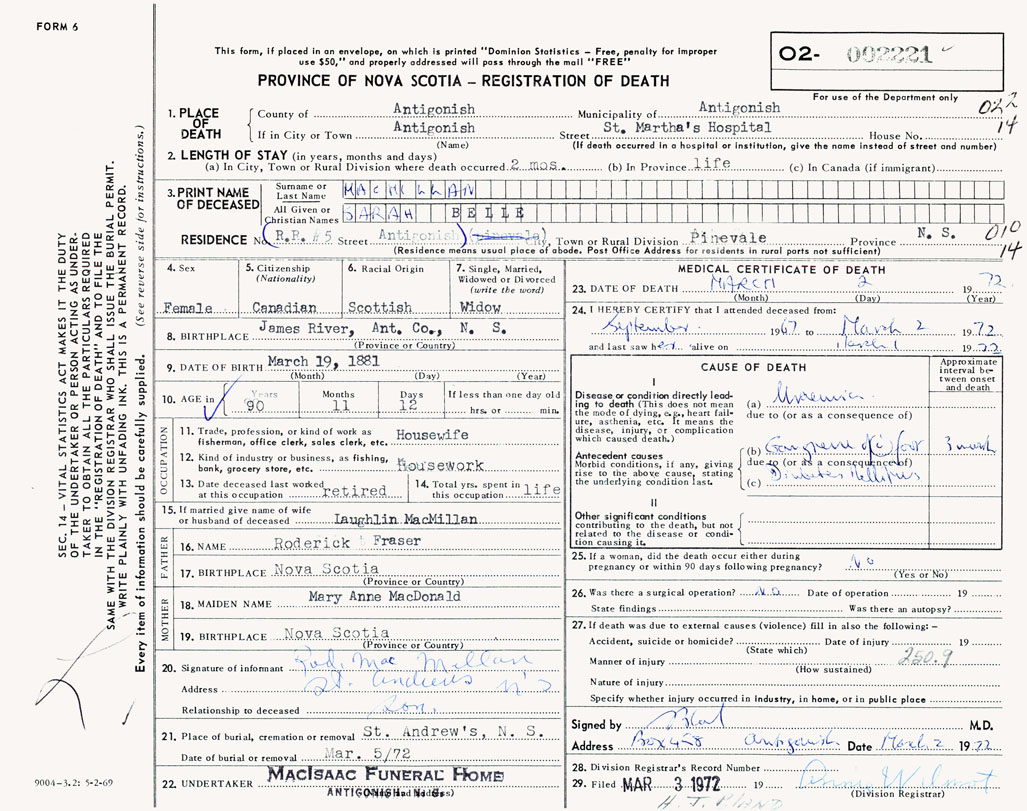 FORM 6
This form, if placed in an envelope, on which is printed "Dominion Statistics – Free, penalty for improper
use $50," and properly addressed will pass through the mail "FREE"
PROVINCE OF NOVA SCOTIA – REGISTRATION OF DEATH
02- 002221
For use of the Department only
022
14
1. PLACE OF DEATH
County of Antigonish Municipality of Antigonish
If in City or Town Antigonish Street St. Martha's Hospital House No.
(Name) (If death occurred in a hospital or institution, give the name instead of street and number)
2. LENGTH OF STAY (in years, months and days)
(a) In City, Town or Rural Division where death occurred 2 mos. (b) In Province life (c) In Canada (if immigrant)
3. PRINT NAME OF DECEASED
Surname or Last Name MACMILLAN
All Given or Christian Names SARAH BELLE
RESIDENCE No. R.R. #5 Street Antigonish (Pinevale), Town or Rural Division Pinevale Province N. S. 010
14
(Residence means usual place of abode. Post Office Address for residents in rural parts not sufficient)
4. Sex
Female
5. Citizenship
(Nationality)
Canadian
6. Racial Origin
Scottish
7. Single, Married,
Widowed or Divorced
(write the word)
Widow
8. BIRTHPLACE James River, Ant. Co., N. S.
(Province or Country)
9. DATE OF BIRTH March 19, 1881
(Month) (Day) (Year)
10. AGE in
Years 90
Months 11
Days 12
If less than one day old
hrs. or min.
OCCUPATION
11. Trade, profession, or kind of work as
fisherman, office clerk, sales clerk, etc. Housewife
12. Kind of industry or business, as fishing,
bank, grocery store, etc. Housework
13. Date deceased last worked
at this occupation retired
14. Total yrs. spent in
this occupation life
15. If married give name of wife
or husband of deceased Laughlin MacMillan
FATHER
16. NAME Roderick Fraser
17. BIRTHPLACE Nova Scotia
(Province or Country)
MOTHER
18. MAIDEN NAME Mary Anne MacDonald
19. BIRTHPLACE Nova Scotia
(Province or Country)
20. Signature of informant Rod. Mac Millan
Address St. Andrews N S
Relationship to deceased Son.
21. Place of burial, cremation or removal St. Andrew's, N. S.
Date of burial or removal Mar. 5/72
22. UNDERTAKER MACISAAC FUNERAL HOME
ANTIGONISH, N. S.
MEDICAL CERTIFICATE OF DEATH
23. DATE OF DEATH MARCH 2 1972
(Month) (Day) (Year)
24. I HEREBY CERTIFY that I attended deceased from:
September 1967 to March 2 1972
and last saw her alive on March 1 1972
CAUSE OF DEATH
Approximate
interval be-
tween onset
and death
I
Disease or condition directly lead-
ing to death (This does not mean
the mode of dying, e.g., heart fail-
ure, asthenia, etc. It means the
disease, injury, or complication
which caused death.)
(a) Uraemia
due to (or as a consequence of)
Antecedent causes
Morbid conditions, if any, giving
rise to the above cause, stating
the underlying condition last.
(b) Gangrene foot 3 month
due to (or as a consequence of)
(c) Diabetes Mellitus
II
Other significant conditions
contributing to the death, but not
related to the disease or condi-
tion causing it.
25. If a woman, did the death occur either during
pregnancy or within 90 days following pregnancy? No
(Yes or No)
26. Was there a surgical operation? No Date of operation 19
State findings Was there an autopsy?
27. If death was due to external causes (violence) fill in also the following: –
Accident, suicide or homicide? Date of injury 19
(State which)
Manner of injury 250.9
(How sustained)
Nature of injury
Specify whether injury occurred in industry, in home, or in public place
Signed by M.D.
Address Box 458 Antigonish Date March 2 1972
28. Division Registrar's Record Number
29. Filed MAR 3 1972 19
(Division Registrar)
SEC. 14 – VITAL STATISTICS ACT MAKES IT THE DUTY
OF THE UNDERTAKER OR PERSON ACTING AS UNDER-
TAKER TO OBTAIN ALL THE PARTICULARS REQUIRED
IN THE "REGISTRATION OF DEATH" AND TO FILE THE
SAME WITH THE DIVISION REGISTRAR WHO SHALL ISSUE THE BURIAL PERMIT.
WRITE PLAINLY WITH UNFADING INK. THIS IS A PERMANENT RECORD.
Every item of information should be carefully supplied. (See reverse side for instructions.)
9004-3.2: 5-2-69